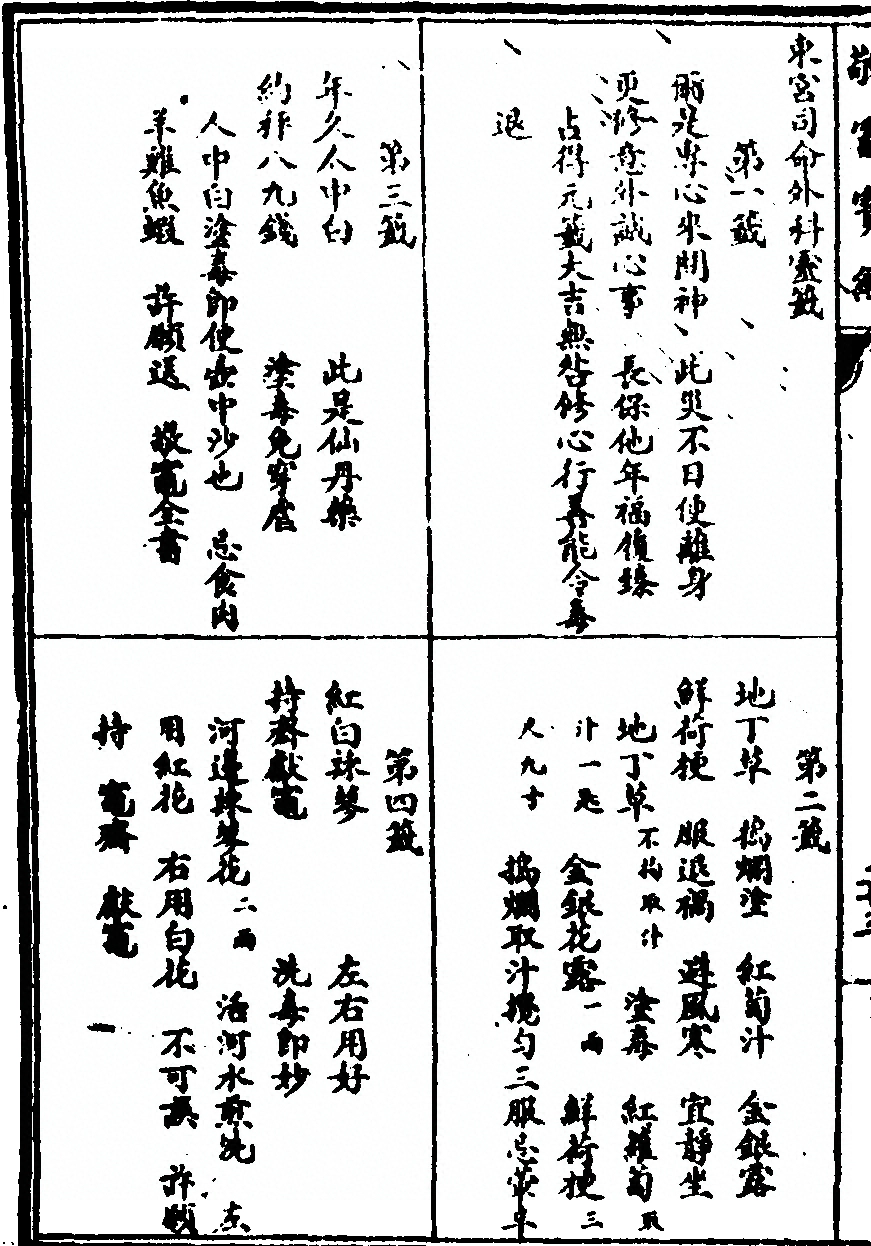 東宮司命外科靈籤
第一籤
爾是專心來問神 此災不日使離身
更修意外誠心事 長保他年福履臻
占得元籤大吉無咎修心行善能令毒
退
第二籤
地丁草 搗爛塗 紅蔔汁 金銀露
鮮荷梗 服退禍 避風寒 宜靜坐
地丁草不拘取汁 塗毒 紅蘿蔔取
汁一匙 金銀花露一兩 鮮荷梗三
尺九寸 搗爛取汁攪勻三服忌
第三籤
年久人中白 此是仙丹藥
約秤八九錢 塗毒免穿
人中白塗毒即便壺中沙也 忌食肉
羊雞魚蝦 許願送 敬竈全書
第四籤
紅白 左右用好
持齋獻竈 洗毒即妙
河邊花二兩 活河水煎洗 左
用紅花 右用白花 不可誤 許願
持 竈齋 獻竈
敬竈